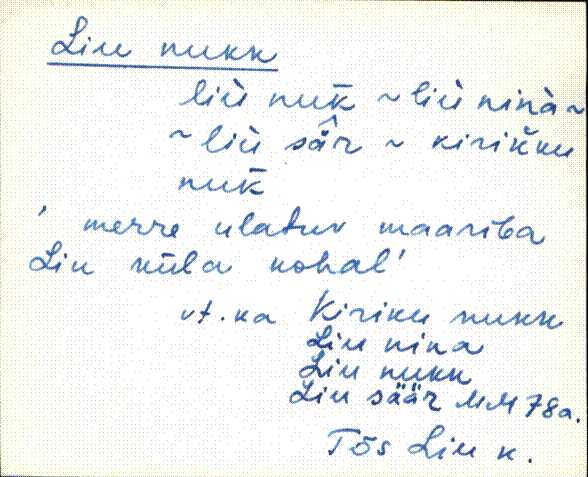 Liu nukk
liù nuk̄ ~ liù ninà ~
~ liù sâ̄r ~ kirik̆ku
nuk̄
' merre ulatuv maariba
Liu küla kohal'
vt. ka Kiriku nukk
Liu nina
Liu nukk
Liu säär MM 78a.
Tõs Liu k.